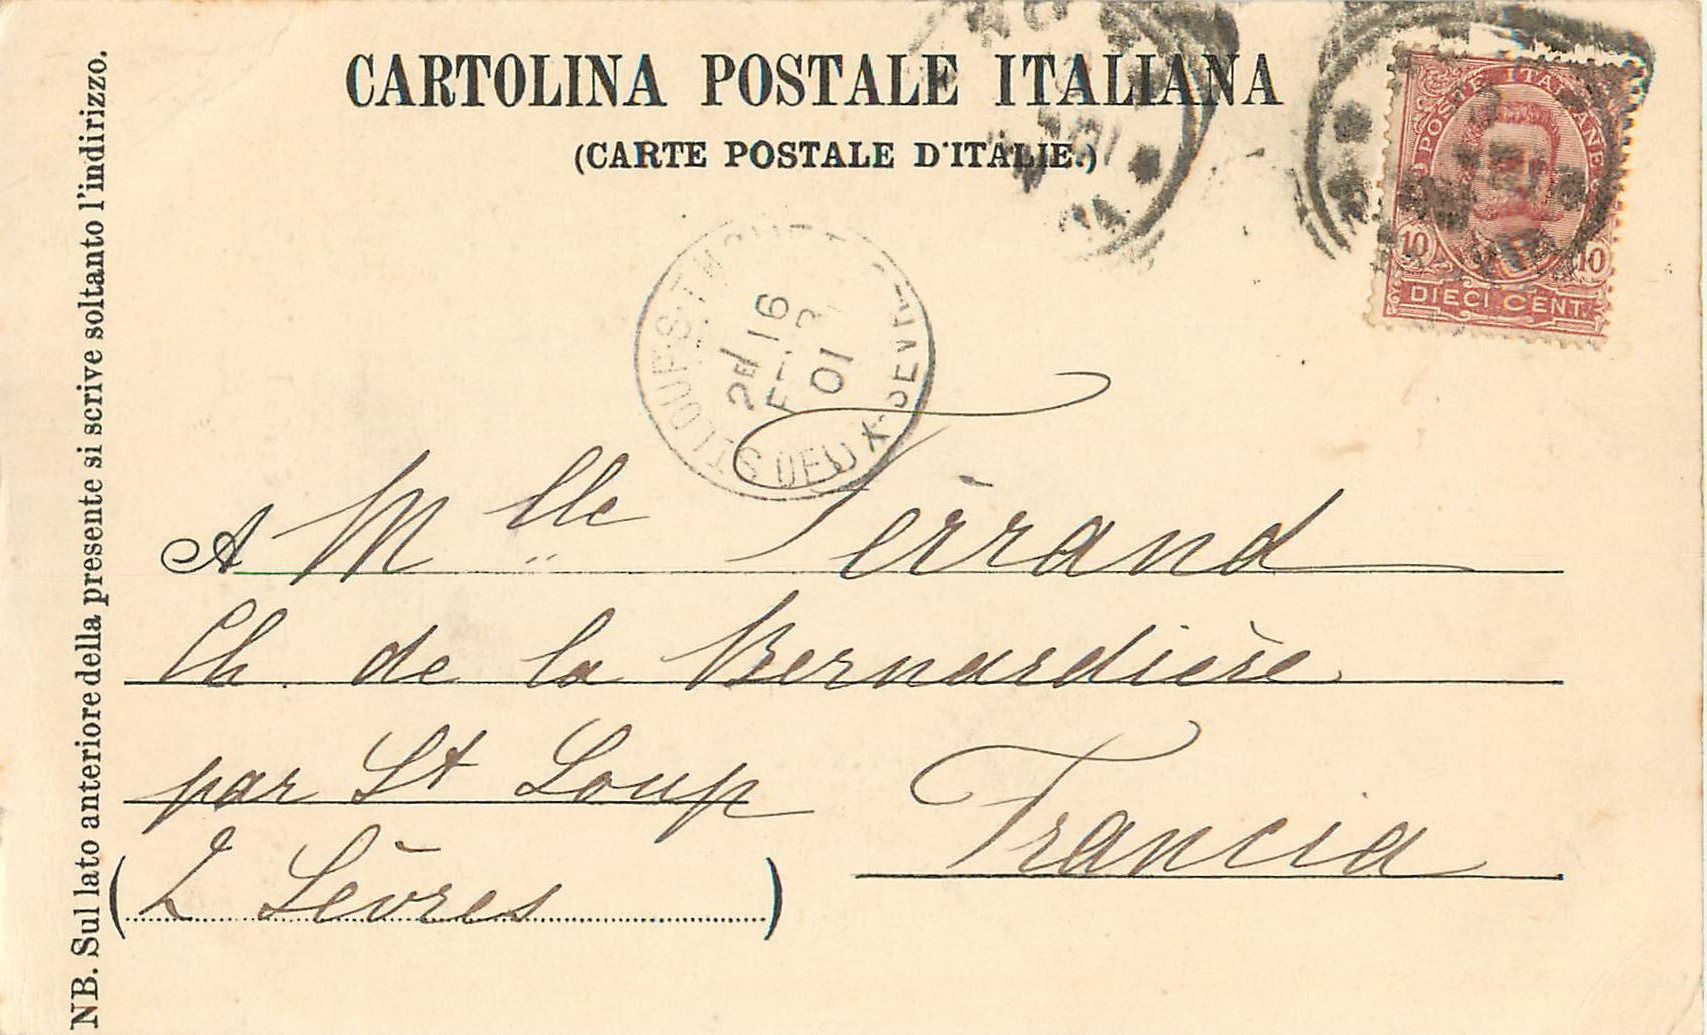 CARTOLINA POSTALE ITALIANA
(CARTE POSTALE D'ITALIE.)
POSTE ITALIANE
10 10
DIECI CENT.
16
01
DEUX-SEVRES
A Mlle Ferrand
Ch. de la Bernardière
par St Loup
(2 Sèvres)
Francia
NB. Sul lato anteriore della presente si scrive soltanto l'indirizzo.